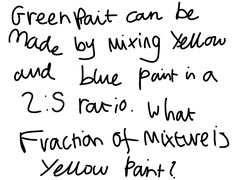 Green Pait can be
Made by Mixing Yellow
and blue paint in a
2:5 ratio. What
Fraction of Mixture is
Yellow Paint?